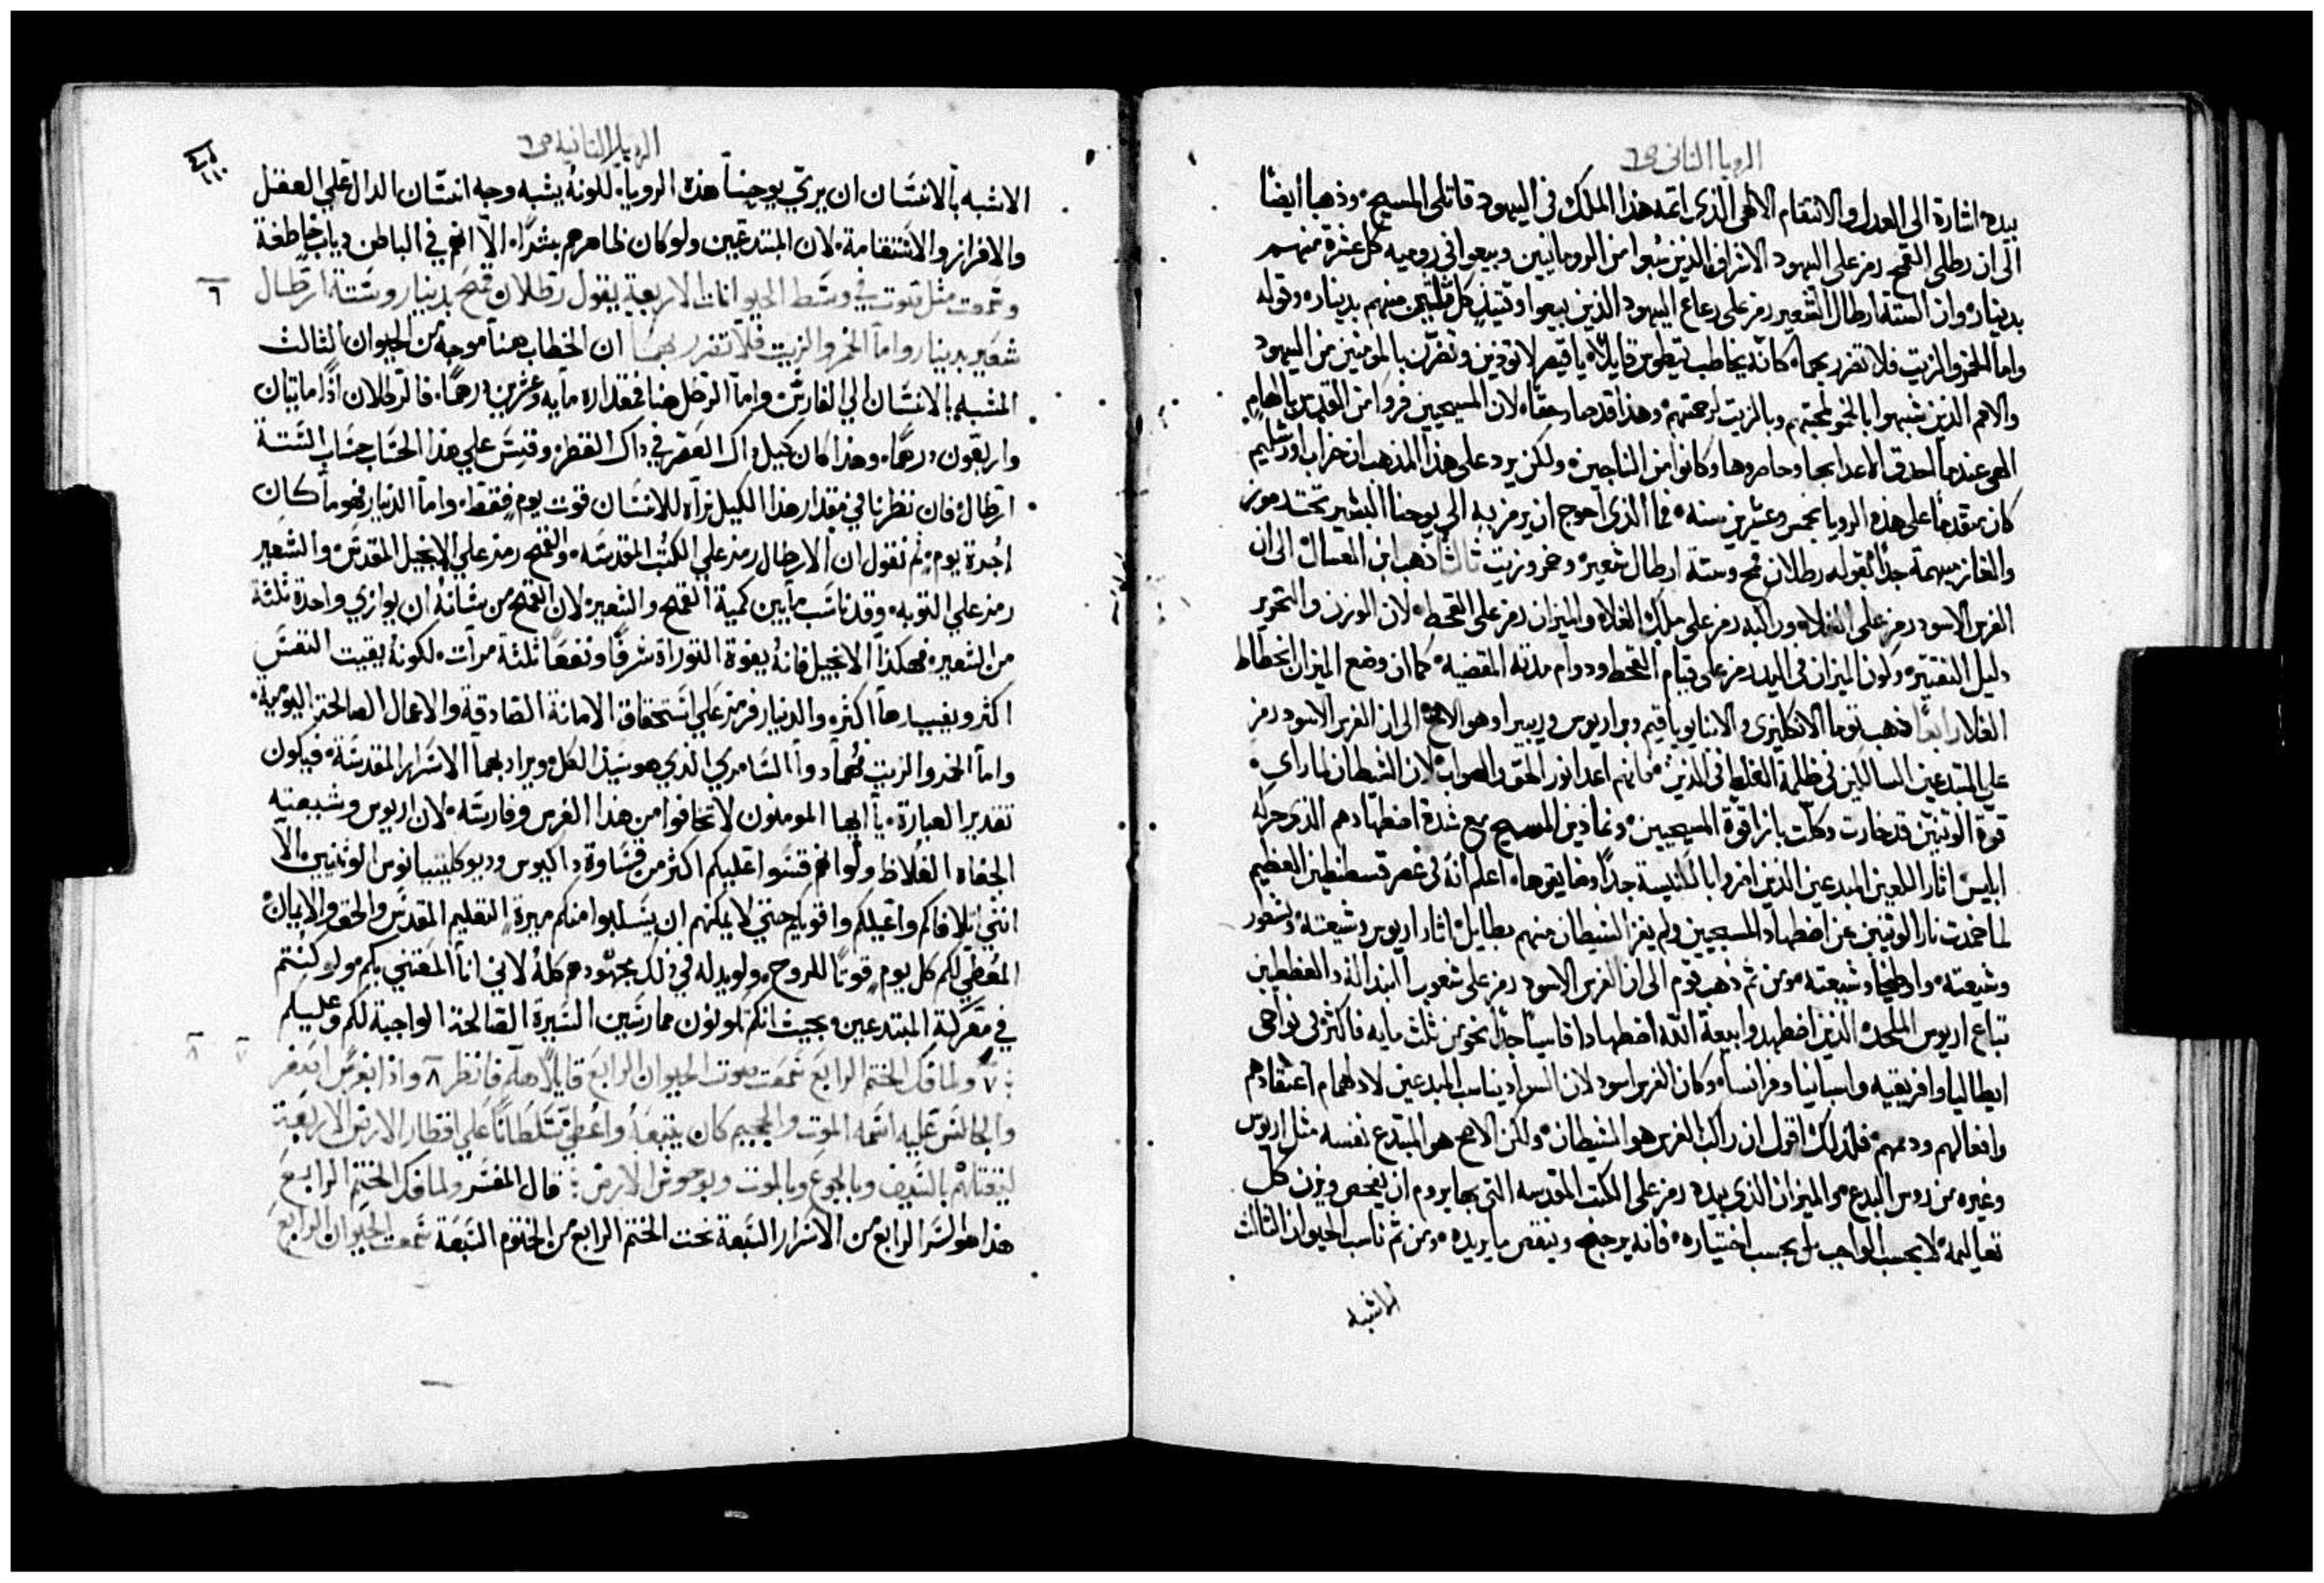 الرويا الثاني ص٦
بيده اشارة الى العدل والانتقام الالهي الذي اتمه هذا الملك في اليهود قاتلي المسيح وذهبا ايضًا
الى ان رطلي القمح رمز على اليهود الاشراف الذين سُبوا من الرومانيين وبيعوا في روميه كل عشرة منهم
بدينار وان الستة ارطال الشعير رمز على رعاع اليهود الذين بيعوا وقتيذ كل ثلثين منهم بدينار وقوله
واما الخمر والزيت فلا تضرر بهما كانه يخاطب تيطوس قايلًا يا قيصر لا توذين وتضرن بالمومنين من اليهود
والامم الذين شبهوا بالخمر لمحبتهم وبالزيت لرحمتهم وهذا قد صار حقًا لان المسيحيين فروا من القدس بالهام
الهي عندما احدق الاعدا بها وحاصروها وكانوا من الناجين ولكن يرد على هذا المذهب ان خراب اورشليم
كان متقدمًا على هذه الرويا بخمس وعشرين سنة فما الذي احوج ان يرمز به الى يوحنا البشير تحت رموز
والغاز مبهمة جدًا بقوله رطلان قمح وستة ارطال شعير وخمر وزيت ثالثًا ذهب ابن العسال الى ان
الفرس الاسود رمز على الغلاء وراكبه رمز على ملك الغلاء والميزان رمز على القحط لان الوزن والتحرير
دليل التقتير وكون الميزان في اليد رمز على قيام القحط ودوام مدته المقضية كما ان وضع الميزان انحطاط
الغلا رابعًا ذهب توما الانكليزي والانبا يوياقيم وبراريوس وريبيرا وهو الاصح الى ان الفرس الاسود رمز
على المبتدعين السالكين في ظلمة الغلط في الدين فانهم اعدا نور الحق والصواب لان الشيطان لما راى
قوة الوثنيين قد خارت وكلت بازا قوة المسيحيين ونما دين المسيح مع شدة اضطهادهم الذي حركه
ابليس اثار اللعين المبدعين الذين اضروا بالكنيسة جدًا وضايقوها اعلم انه في عصر قسطنطين العظيم
لما خمدت نار الوثنيين عن اضطهاد المسيحيين ولم يفز الشيطان منهم بطايل اثار اريوس وشيعته ونسطور
وشيعته واوطيخا وشيعته ومن ثم ذهب قوم الى ان الفرس الاسود رمز على شعوب البندالة والغططيين
تباع اريوس الملحدة الذين اضطهدوا بيعة الله اضطهادا قاسيًا جدًا نحو من ثلث مايه فاكثر في نواحي
ايطاليا وافريقيه واسبانيا وفرانسا وكان الفرس اسود لان السواد يناسب المبدعين لادلهمام اعتقادهم
وافعالهم ودمهم فلذلك اقول ان راكب الفرس هو الشيطان ولكن الاصح هو المبتدع نفسه مثل اريوس
وغيره من روس البدع والميزان الذي بيده رمز على الكتب المقدسه التي بها يروم ان يفحص ويزن كل
تعاليمه لا بحسب الواجب بل بحسب اختياره فانه يرجح وينقص ما يريده ومن ثم ناسب الحيوان الثالث
الاشبه
الرويا الثانيه ص٦
الاشبه بالانسان ان يري يوحنا هذه الرويا لكونه يشبه وجه انسان الدال علي العقل
والافراز والاستقامة لان المبتدعين ولو كان ظاهرهم بشرًا الا انهم في الباطن دياب خاطفة
٦ وسمعت مثل صوت في وسط الحيوانات الاربعة يقول رطلان قمح بدينار وستة ارطال
شعير بدينار واما الخمر والزيت فلا تضرر بهما ان الخطاب هنا موجه من الحيوان الثالث
المشبه بالانسان الي الفارس واما الرطل هنا فمقداره مايه وعشرين درهمًا فالرطلان اذًا مايتان
واربعون درهمًا وهذا كان كيل داك العصر في داك القطر وقس علي هذا الحساب حساب الستة
ارطال فان نظرنا في مقدار هذا الكيل نراه للانسان قوت يوم فقط واما الدينار فهو ما كان
اجرة يوم ثم نقول ان الارطال رمز علي الكتب المقدسه والقمح رمز علي الانجيل المقدس والشعير
رمز علي التوبه وقد ناسب ما بين كمية القمح والشعير لان القمح من شانه ان يوازي واحدة ثلثة
من الشعير فهكذا الانجيل فانه يفوق التوراة شرفًا ونفعًا ثلثة مرات لكونه يقيت النفس
اكثر ويفيدها اكثر والدينار فرمز علي استحقاق الامانة الصادقة والاعمال الصالحة اليومية
واما الخمر والزيت فهما دوا السامري الذي هو سيد الكل ويراد بهما الاسرار المقدسة فيكون
تقدير العبارة يا ايها المومنون لا تخافوا من هذا الفرس وفارسه لان اريوس وشيعته
الجفاه الغلاظ ولو انهم قسوا عليكم اكثر من قساوة داكيوس وديوكلتيانوس الوثنيين الا
انني اتلافاكم واعيلكم واقويكم حتي لا يمكنهم ان يسلبوا منكم ميرة التعليم المقدس والحق والايمان
المعطي لكم كل يوم قوتًا للروح ولو بدله في ذلك مجهودهم كله لاني انا المعتني بكم ولو كنتم
في معركة المبتدعين بحيث انكم تكونون ممارسين السيرة الصالحة الواجبة لكم وعليكم
٧ ولما فك الختم الرابع سمعت صوت الحيوان الرابع قايلًا هلم فانظر ٨ واذا بفرس اصفر
والجالس عليه اسمه الموت والجحيم كان يتبعه واعطي سلطانًا علي اقطار الارض الاربعة
ليقتلهم بالسيف وبالجوع وبالموت وبوحوش الارض: قال المفسر ولما فك الختم الرابع
هذا هو السر الرابع من الاسرار السبعة تحت الختم الرابع من الختوم السبعة سمعت الحيوان الرابع